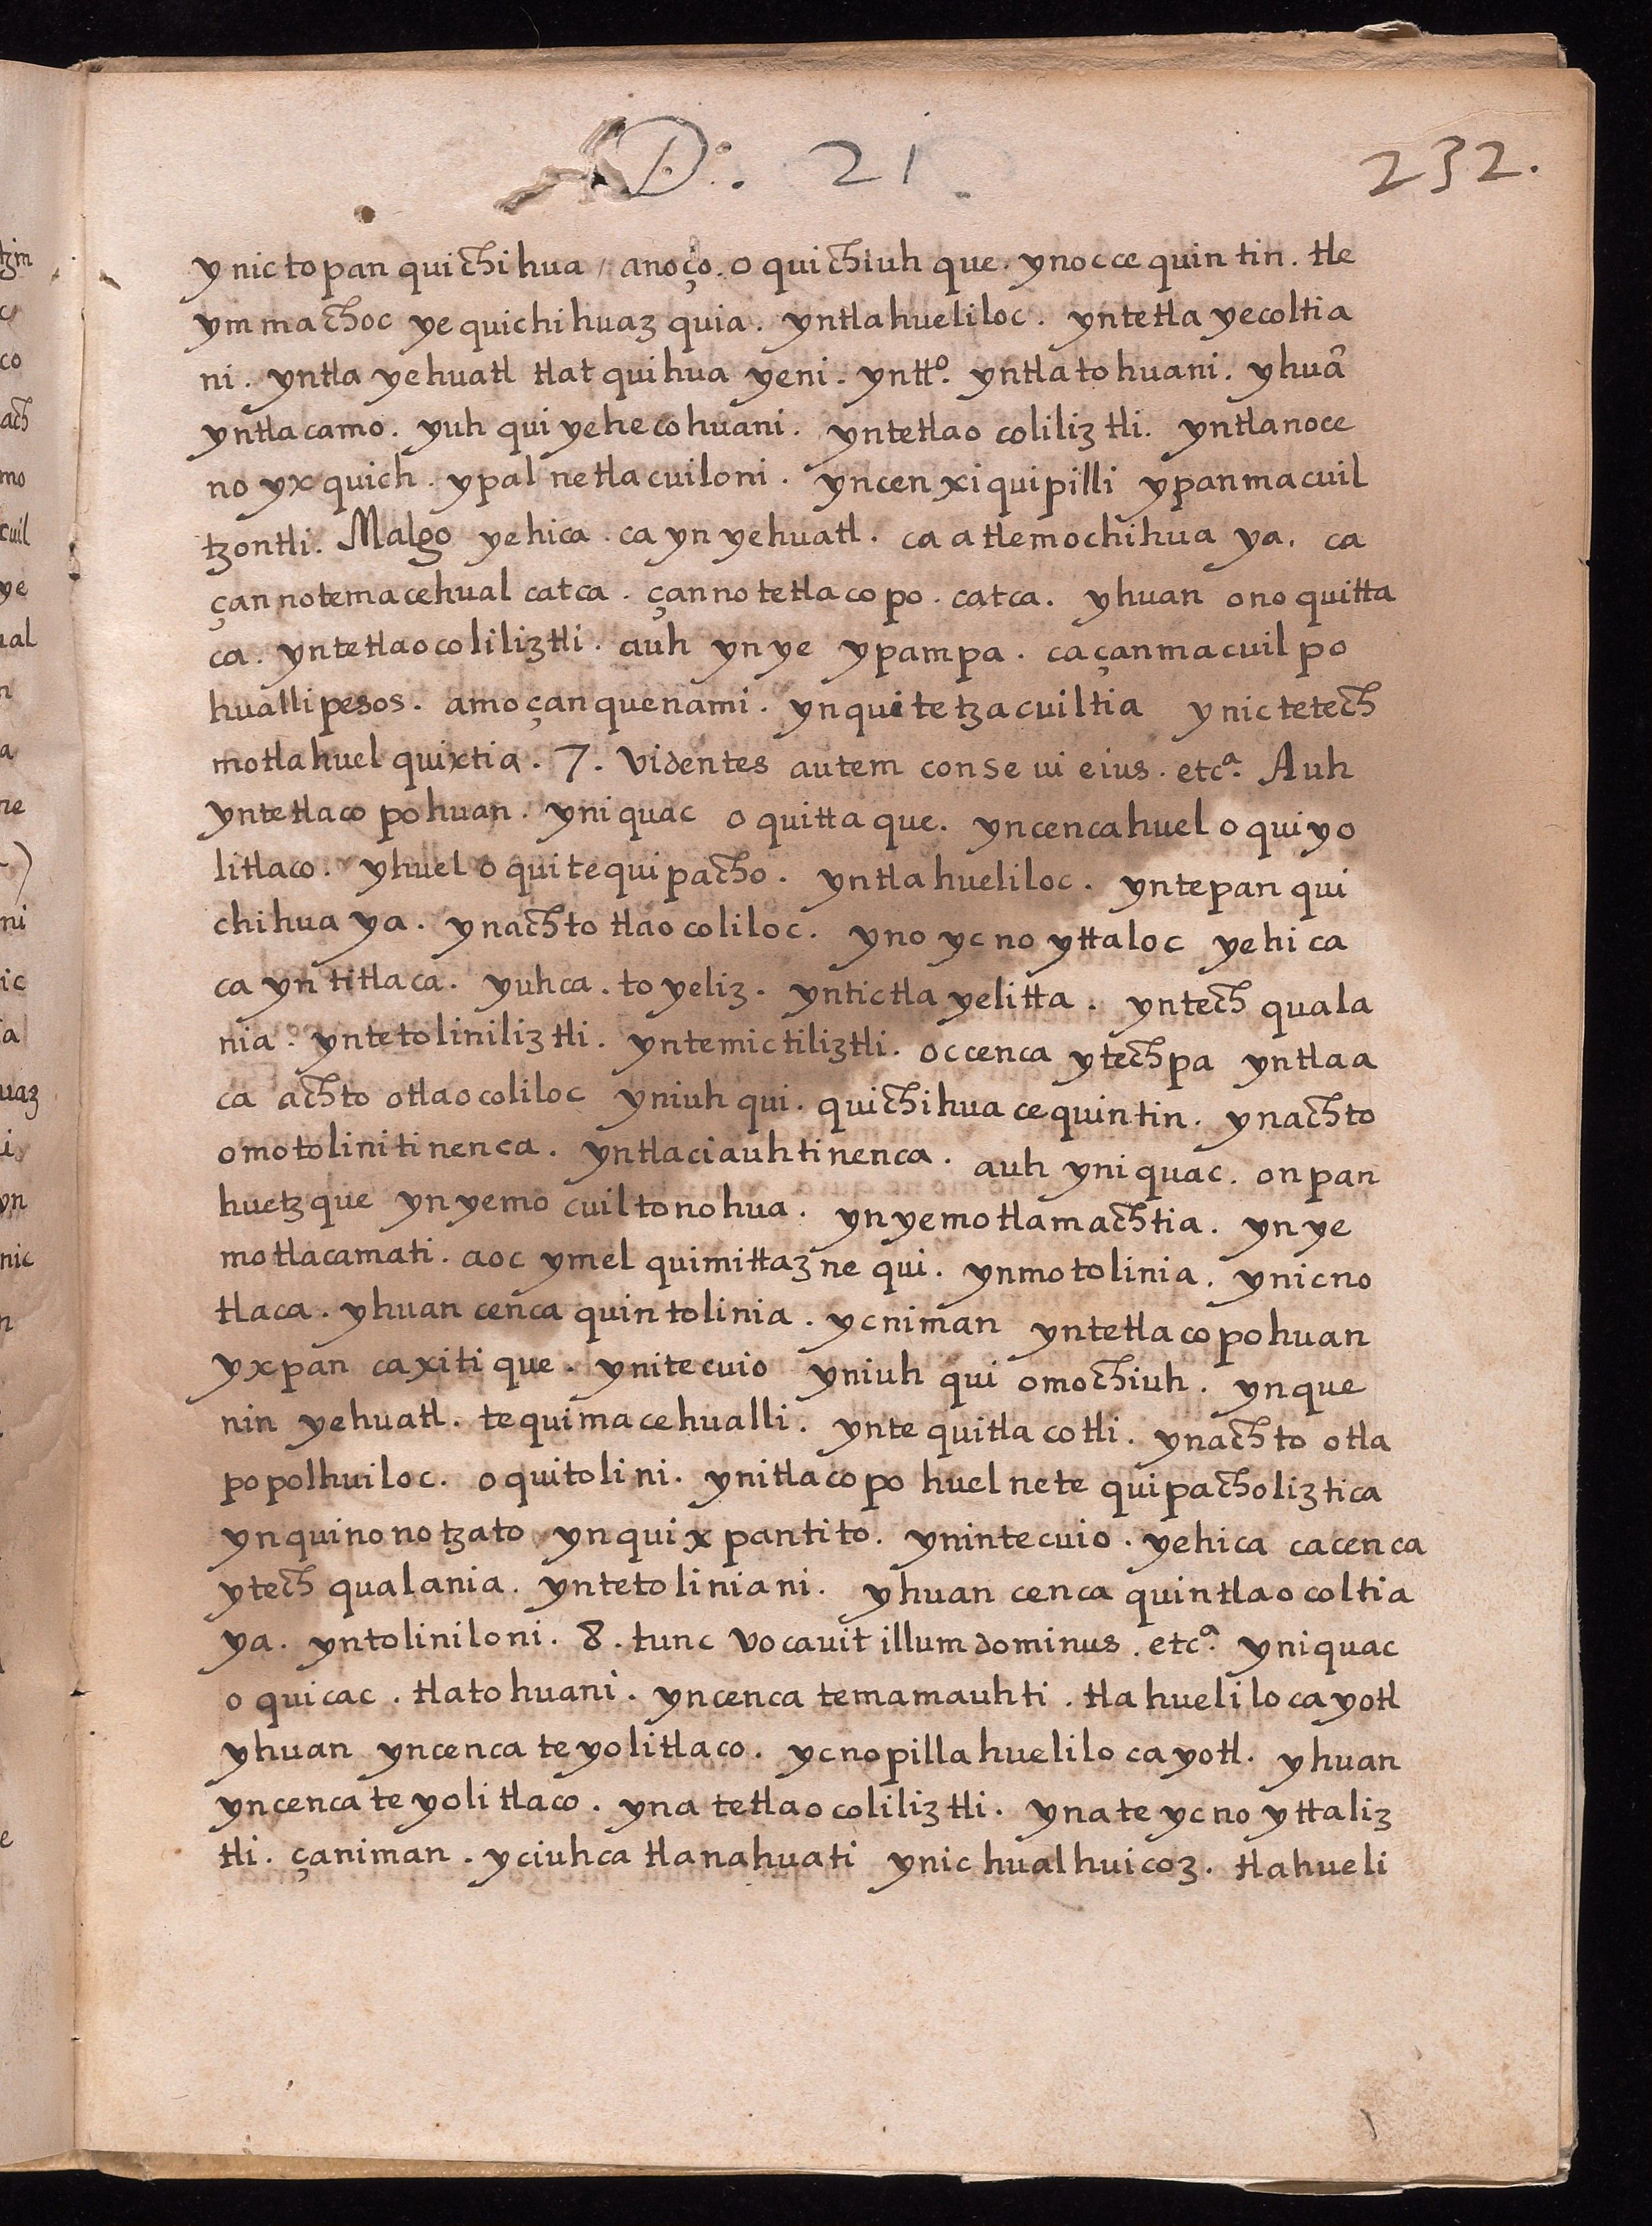 D: . 21 232.
ynictopan quichihua, anoço. o quichiuh que. ynoccequintin. tle
ym machoc ye quichihuaz quia. yntlahueliloc. yntetla yecoltia
ni. yntla yehuatl tlatquihua yeni. yntto. yntlatohuani. yhuã
yntlacamo. yuh qui yehecohuani. yntetlao coliliztli. yntlanoce
no yxquich. ypal netlacuiloni. yncen xiquipilli ypanmacuil
tzontli. Malgo yehica. ca yn yehuatl. ca atlemochihua ya. ca
çannotemacehual catca. çanno tetlacopo. catca. yhuan ono quitta
ca. yntetlaocoliliztli. auh yn ye ypampa. caçanmacuil po
hualli pesos. amo çan quenami. ynquitetzacuiltia ynictetech
motlahuel quixtia. 7. videntes autem conse ui eius. etca. Auh
yntetlaco pohuan. yniquac o quitta que. yncencahuel o quiyo
litlaco. yhuel o quitequipacho. yntlahueliloc. yntepan qui
chihua ya. ynachto tlaocoliloc. yno ycno yttaloc yehica
ca yn titlaca. yuhca. to yeliz. yntictla yelitta. yntech quala
nia. yntetoliniliztli. yntemictiliztli. occenca ytechpa yntlaa
ca achto otlaocoliloc yniuh qui. quichihua cequintin. ynachto
omotolinitinenca. yntlaciauhtinenca. auh yniquac. onpan
huetzque ynyemo cuiltonohua. ynyemotlamachtia. ynye
motlacamati. aoc ymel quimittaz ne qui. ynmotolinia. ynicno
tlaca. yhuan cenca quintolinia. ycniman yntetlacopohuan
yxpan caxitique. ynitecuio yniuh qui omochiuh. ynque
nin yehuatl. tequimacehualli. ynte quitlacotli. ynachto otla
popolhuiloc. o quitolini. ynitlacopo huel nete quipacholiztica
ynquinonotzato ynquixpantito. ynintecuio. yehica cacenca
ytech qualania. yntetoliniani. yhuan cenca quintlaocoltia
ya. yntoliniloni. 8. tunc vocavit illum dominus. etca. yniquac
o quicac. tlatohuani. yncenca temamauhti. tlahuelilocayotl
yhuan yncenca te yolitlaco. ycnopillahuelilocayotl. yhuan
yncenca te yolitlaco. yna tetlaocoliliztli. yna te ycno yttaliz
tli. çaniman. yciuhca tlanahuati ynic hualhuicoz. tlahueli